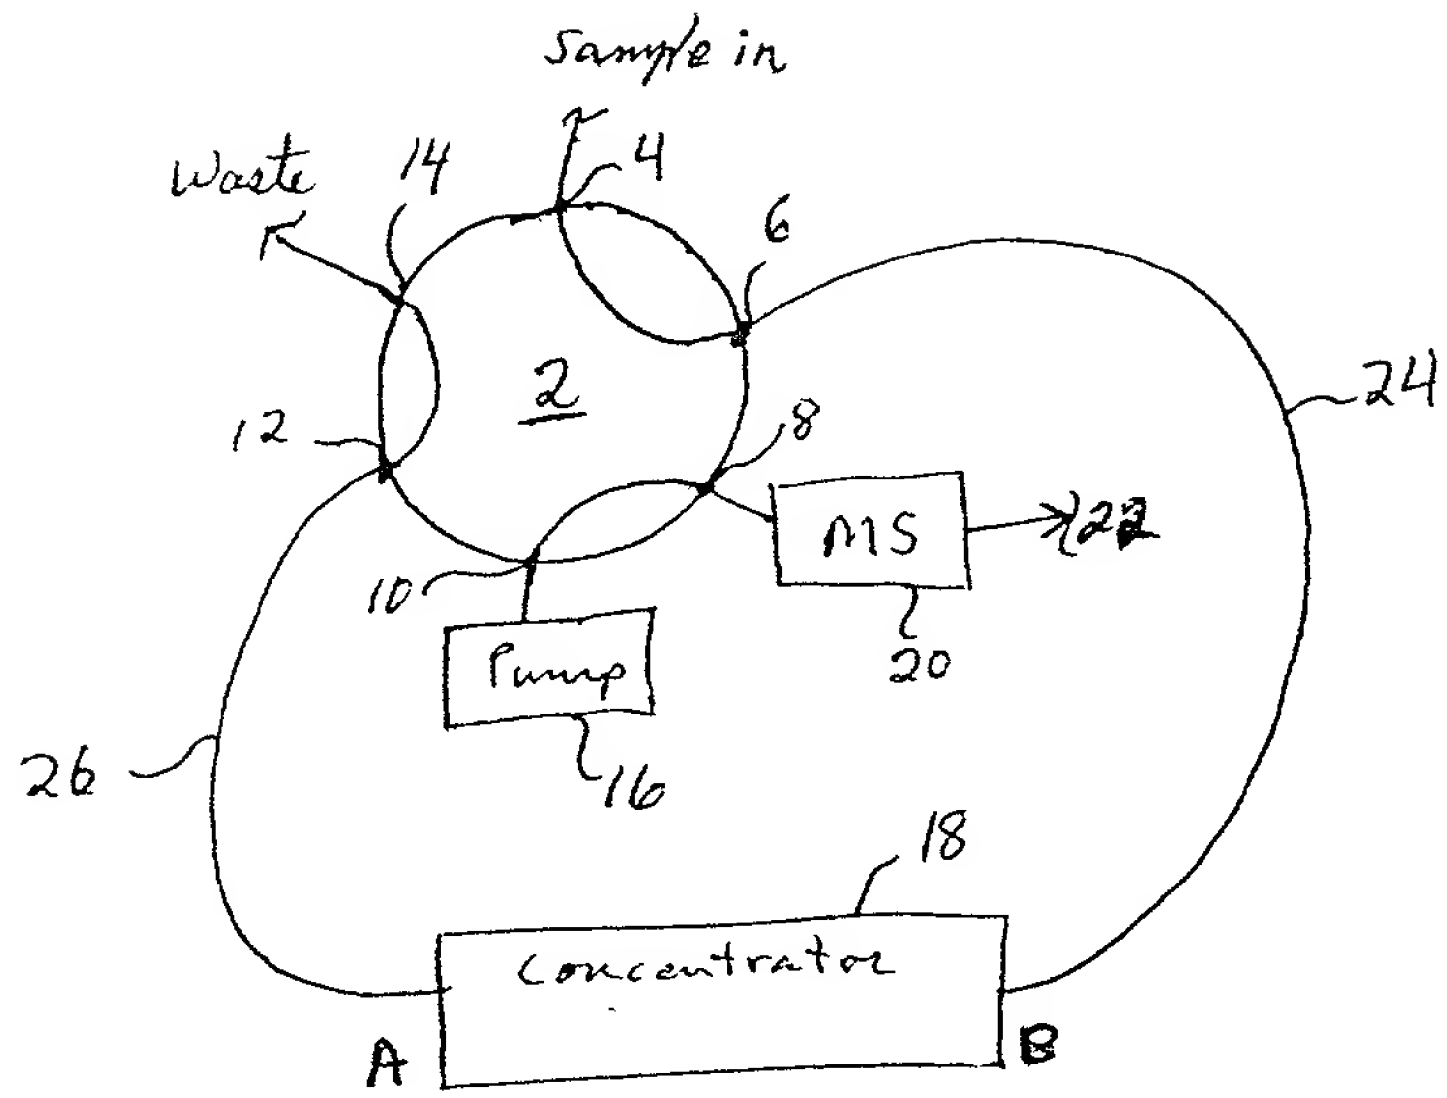 Sample in
Waste
14
4
6
2
24
12
8
MS
22
10
20
Pump
26
16
18
Concentrator
A
B